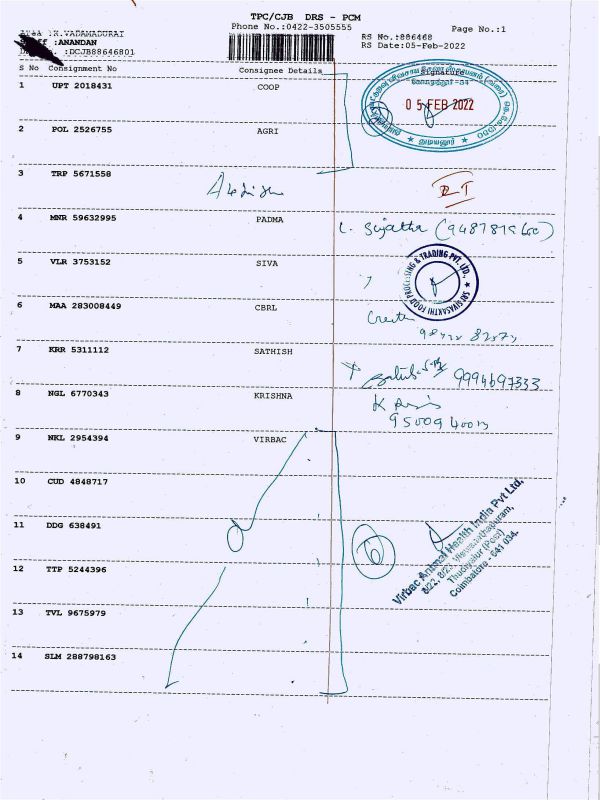 TPC/CJB DRS - PCM
Phone No.:0422-3505555
Page No.:1
:K.VADAMADURAI
:ANANDAN
:DCJB88646801
RS No.:886468
RS Date:05-Feb-2022
S No Consignment No Consignee Details Signature
1 UPT 2018431 COOP
05 FEB 2022
துடியலூர்
2 POL 2526755 AGRI
3 TRP 5671558
4 MNR 59632995 PADMA
L. Sujatha
5 VLR 3753152 SIVA
SRI SIVASAKTHI FOOD PROCESSING & TRADING PVT. LTD.
6 MAA 283008449 CBRL
7 KRR 5311112 SATHISH
9994697333
8 NGL 6770343 KRISHNA
9 NKL 2954394 VIRBAC
10 CUD 4848717
11 DDG 638491
6
Virbac Animal Health India Pvt Ltd.
8/22, 8/23, Viswanathapuram,
Thudiyalur (Post)
Coimbatore - 641 034.
12 TTP 5244396
13 TVL 9675979
14 SLM 288798163